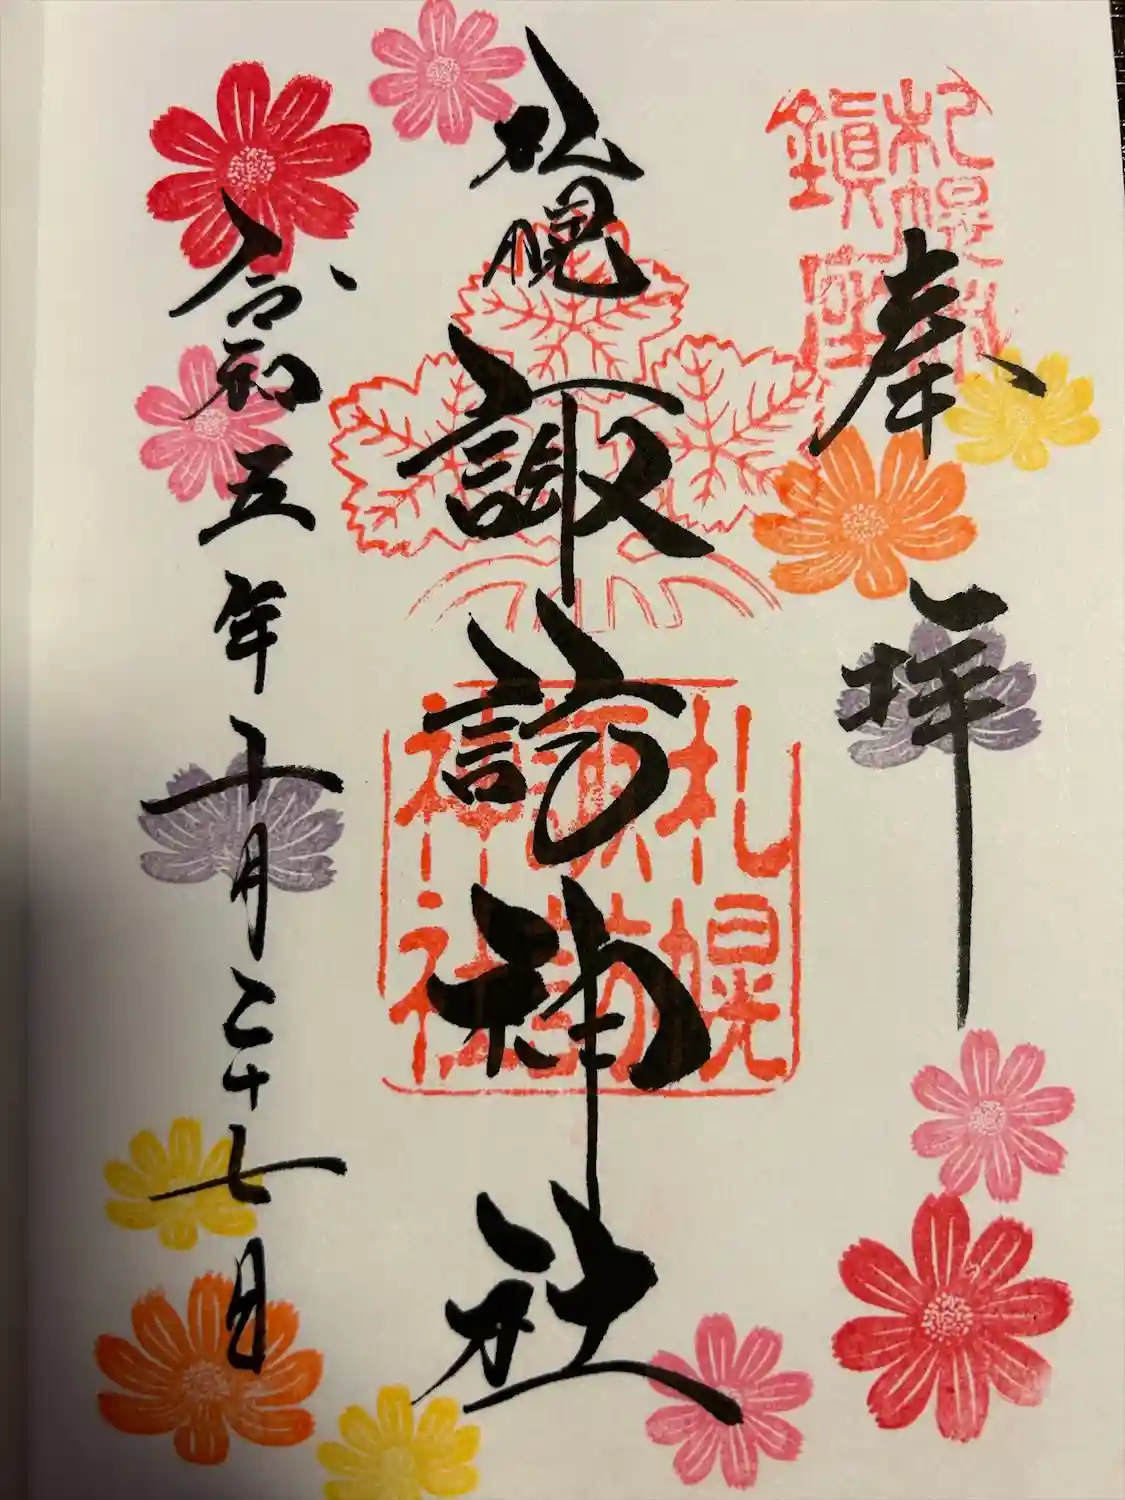 札幌
鎮座
奉拝
札幌 諏訪神社
札幌
諏訪
神社
令和五年十月二十七日